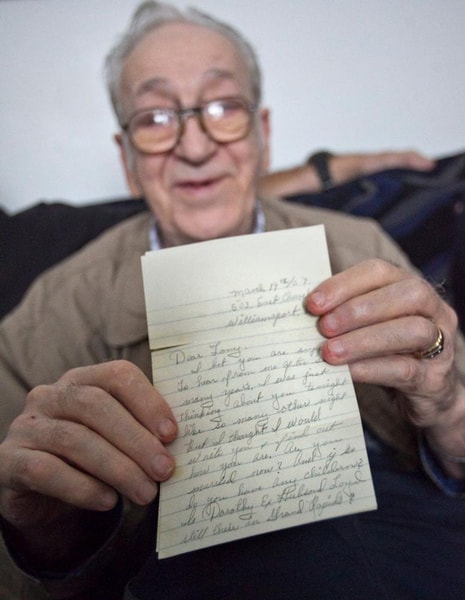 March 17th/67,
503 East
Williamsport
Dear Tony,
I bet you are
to hear from me after so
many years. I was just
thinking about you tonight
like so many other nights
but I thought I would
write you & find out
how you are. Are you
married now? And if so
do you have any children?
Dorothy Ex Husband Loyd
still here in Grand Rapids?